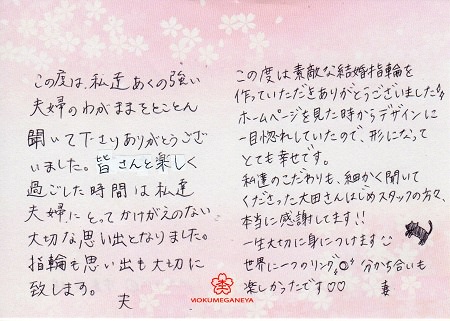 この度は、私達あくの強い
夫婦のわがままをとことん
聞いて下さりありがとうござ
いました。皆さんと楽しく
過ごした時間は私達
夫婦にとってかけがえのない
大切な思い出となりました。
指輪も思い出も大切に
致します。
夫
この度は素敵な結婚指輪を
作っていただきありがとうございました!!
ホームページを見た時からデザインに
一目惚れしていたので、形になって
とても幸せです。
私達のこだわりも、細かく聞いて
くださった大田さんはじめスタッフの方々、
本当に感謝してます!!
一生大切に身につけます
世界に一つのリング 分かち合いも
楽しかったです♡♡
妻
MOKUMEGANEYA